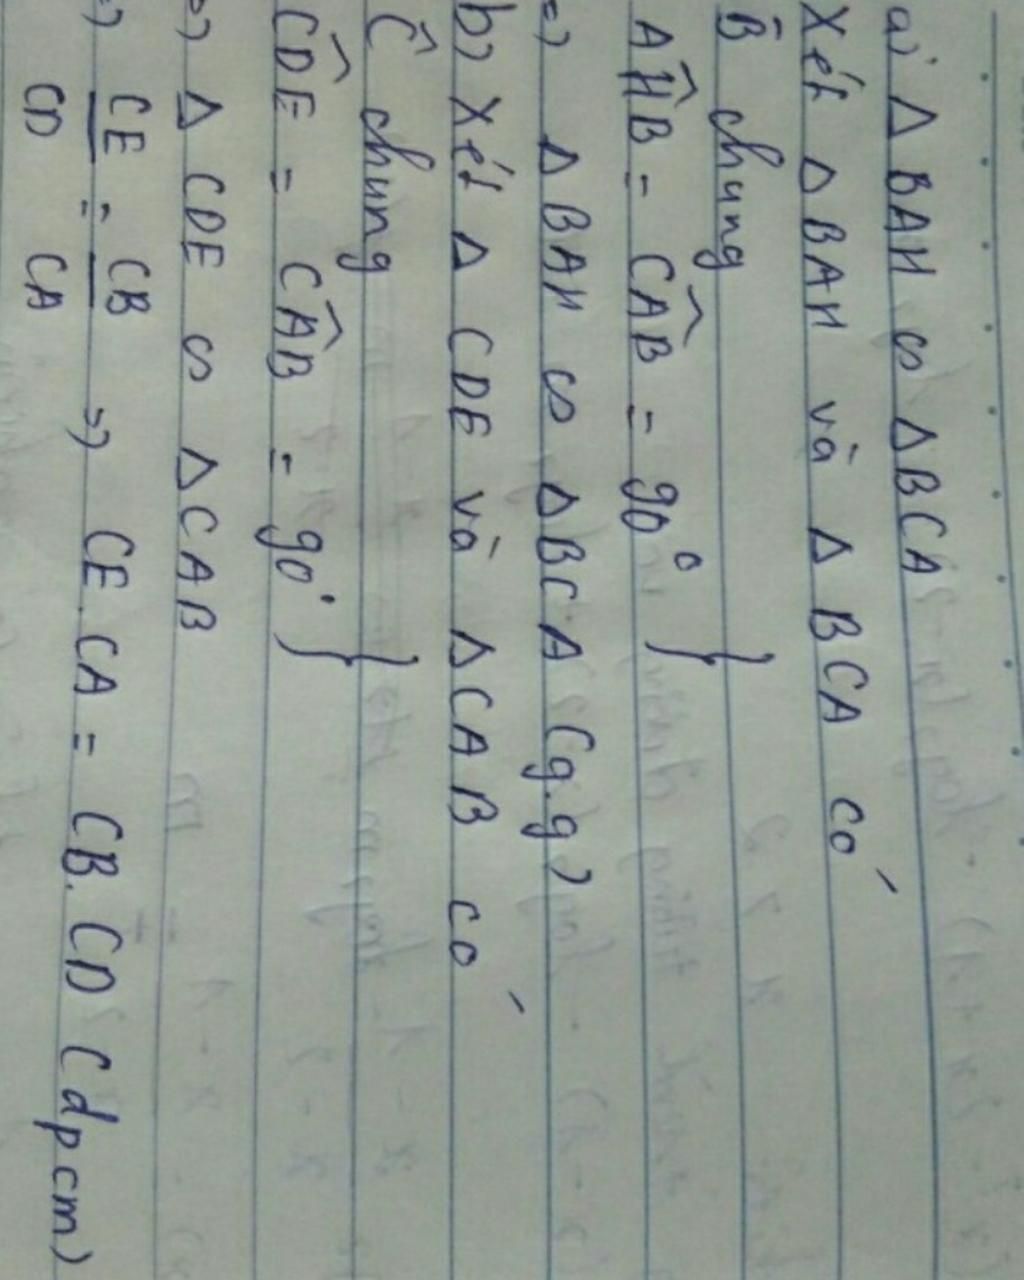 a) Δ BAH ∽ Δ BCA
Xét Δ BAH và Δ BCA có
B̂ chung
AĤB = CÂB = 90° }
=) Δ BAH ∽ Δ BCA (g.g)
b) Xét Δ CDE và Δ CAB có
Ĉ chung
CD̂E = CÂB = 90° }
=) Δ CDE ∽ Δ CAB
=) CE/CD = CB/CA => CE. CA = CB. CD (dpcm)